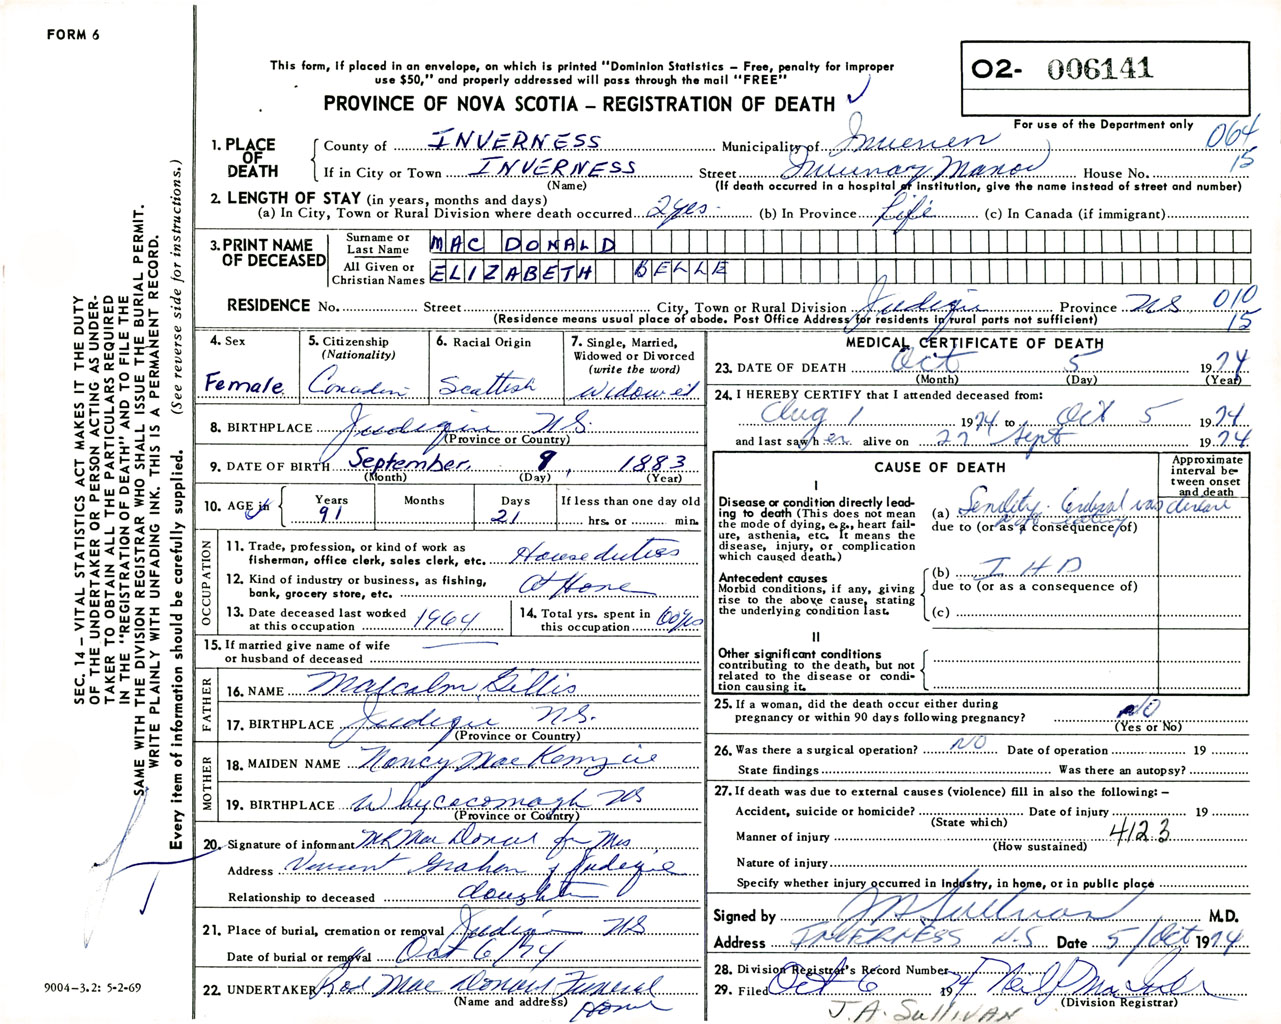 FORM 6
This form, if placed in an envelope, on which is printed "Dominion Statistics – Free, penalty for improper
use $50," and properly addressed will pass through the mail "FREE"
PROVINCE OF NOVA SCOTIA – REGISTRATION OF DEATH
02- 006141
For use of the Department only
064
15
1. PLACE OF DEATH
County of INVERNESS Municipality of
If in City or Town INVERNESS Street Manor House No.
(Name) (If death occurred in a hospital or institution, give the name instead of street and number)
2. LENGTH OF STAY (in years, months and days)
(a) In City, Town or Rural Division where death occurred 2 yrs. (b) In Province Life (c) In Canada (if immigrant)
3. PRINT NAME OF DECEASED
Surname or Last Name MAC DONALD
All Given or Christian Names ELIZABETH BELLE
RESIDENCE No. Street City, Town or Rural Division Judique Province NS 010
15
(Residence means usual place of abode. Post Office Address for residents in rural parts not sufficient)
4. Sex
Female
5. Citizenship
(Nationality)
Canadian
6. Racial Origin
Scottish
7. Single, Married,
Widowed or Divorced
(write the word)
Widowed
8. BIRTHPLACE Judique N.S.
(Province or Country)
9. DATE OF BIRTH September 9, 1883
(Month) (Day) (Year)
10. AGE in
Years 91
Months
Days 21
If less than one day old
hrs. or min.
OCCUPATION
11. Trade, profession, or kind of work as
fisherman, office clerk, sales clerk, etc. House duties
12. Kind of industry or business, as fishing,
bank, grocery store, etc. At Home
13. Date deceased last worked
at this occupation 1964
14. Total yrs. spent in
this occupation 60 yrs
15. If married give name of wife
or husband of deceased
FATHER
16. NAME Malcolm Gillis
17. BIRTHPLACE Judique N.S.
(Province or Country)
MOTHER
18. MAIDEN NAME Nancy MacKenzie
19. BIRTHPLACE Whycocomagh NS
(Province or Country)
20. Signature of informant MacDonald for Mrs
Address Vincent Graham Judique
Relationship to deceased daughter
21. Place of burial, cremation or removal Judique NS
Date of burial or removal Oct 6/74
22. UNDERTAKER Rod MacDonald Funeral
(Name and address) Home
MEDICAL CERTIFICATE OF DEATH
23. DATE OF DEATH Oct 5 1974
(Month) (Day) (Year)
24. I HEREBY CERTIFY that I attended deceased from:
Aug 1 1974 to Oct 5 1974
and last saw her alive on 27 Sept 1974
CAUSE OF DEATH
Approximate
interval be-
tween onset
and death
I
Disease or condition directly lead-
ing to death (This does not mean
the mode of dying, e.g., heart fail-
ure, asthenia, etc. It means the
disease, injury, or complication
which caused death.)
(a) Senility. disease
due to (or as a consequence of)
Antecedent causes
Morbid conditions, if any, giving
rise to the above cause, stating
the underlying condition last.
(b) I H D
due to (or as a consequence of)
(c)
II
Other significant conditions
contributing to the death, but not
related to the disease or condi-
tion causing it.
25. If a woman, did the death occur either during
pregnancy or within 90 days following pregnancy? NO
(Yes or No)
26. Was there a surgical operation? NO Date of operation 19
State findings Was there an autopsy?
27. If death was due to external causes (violence) fill in also the following: –
Accident, suicide or homicide? Date of injury 19
(State which)
Manner of injury 4123
(How sustained)
Nature of injury
Specify whether injury occurred in Industry, in home, or in public place
Signed by J A Sullivan M.D.
Address INVERNESS N.S Date 5/Oct 1974
28. Division Registrar's Record Number
29. Filed Oct 6 1974
(Division Registrar)
J.A. SULLIVAN
SEC. 14 – VITAL STATISTICS ACT MAKES IT THE DUTY
OF THE UNDERTAKER OR PERSON ACTING AS UNDER-
TAKER TO OBTAIN ALL THE PARTICULARS REQUIRED
IN THE "REGISTRATION OF DEATH" AND TO FILE THE
SAME WITH THE DIVISION REGISTRAR WHO SHALL ISSUE THE BURIAL PERMIT.
WRITE PLAINLY WITH UNFADING INK. THIS IS A PERMANENT RECORD.
Every item of information should be carefully supplied. (See reverse side for instructions.)
9004-3.2: 5-2-69